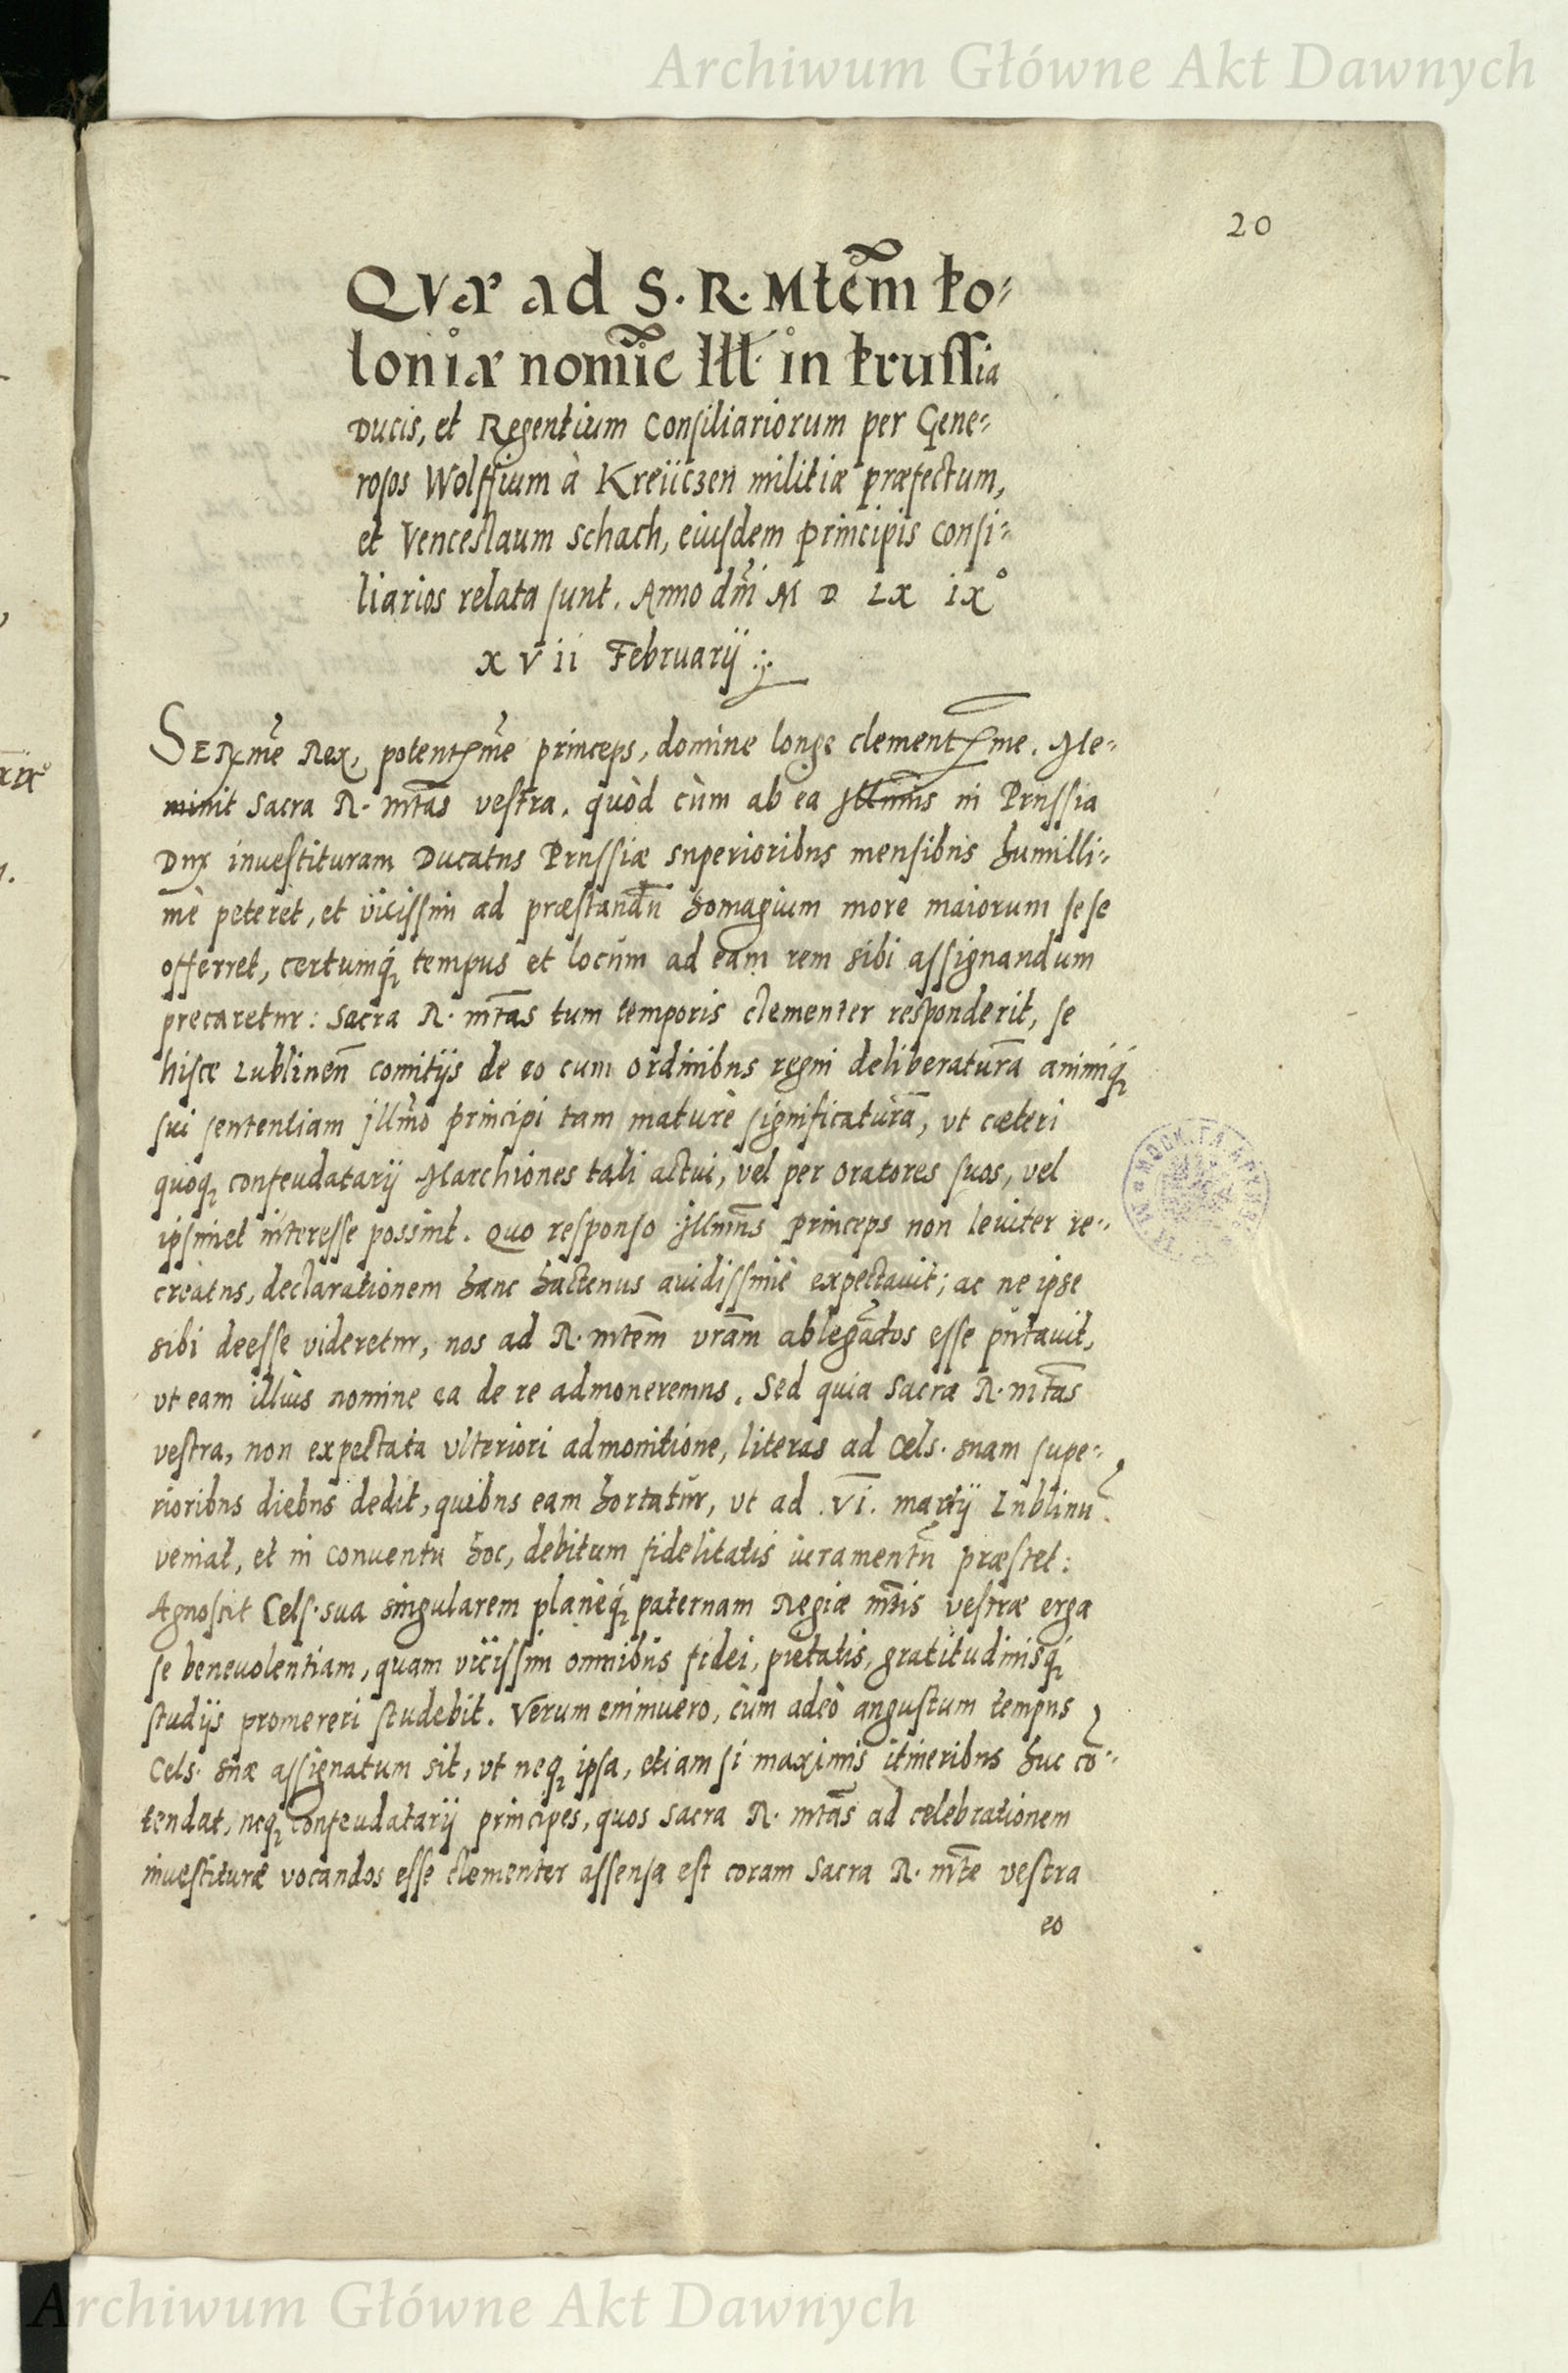 Archiwum Główne Akt Dawnych
20
QVæ ad S. R. Mtem Po-
loniæ nomīe Ill. in Prussia
Ducis, et Regentium Consiliariorum per Gene-
rosos Wolffium à Kreiiczen militiæ præfectum,
et Venceslaum Schach, eiusdem principis consi-
liarios relata sunt. Anno dm̄i M D LX IX°
X V II Februarij
SERme Rex, potentme princeps, domine longe clementme. Me-
minit Sacra R. mtas vestra, quòd cùm ab ea Illmus in Prussia
Dux inuestituram Ducatus Prussiæ superioribus mensibus humilli-
mè peteret, et vicissim ad præstandū homagium more maiorum sese
offerret, certumq́ tempus et locum ad eam rem sibi assignandum
precaretur: Sacra R. mtas tum temporis clementer responderit, se
hisce Lublineñ comitijs de eo cum ordinibus regni deliberaturā animiq́
sui sententiam illmo principi tam maturè significaturā, vt cæteri
quoq confeudatarij Marchiones tali actui, vel per oratores suos, vel
ipsimet interesse possint. Quo responso Illmus princeps non leuiter re-
creatus, declarationem hanc hactenus auidissimè expectauit; ac ne ipse
sibi deesse videretur, nos ad R. mtem vrām ablegādos esse putauit,
vt eam illius nomine ea de re admoneremus. Sed quia Sacra R. mtas
vestra, non expectata vlteriori admonitione, literas ad Cels. suam supe-
rioribus diebus dedit, quibus eam hortatur, vt ad .VI. martij Lublinū
veniat, et in conuentu hoc, debitum fidelitatis iuramentū præstet:
Agnoscit Cels. sua singularem planèq́ paternam Regiæ mtis vestræ erga
se beneuolentiam, quam vicissim omnibus fidei, pietatis, gratitudinisq́
studijs promereri studebit. Verum enimuero, cùm adeò angustum tempus
Cels. suæ assignatum sit, vt neq ipsa, etiam si maximis itineribus huc cō-
tendat, neq confeudatarij principes, quos Sacra R. mtas ad celebrationem
inuestituræ vocandos esse clementer assensa est coram Sacra R. mte vestra
eo
Archiwum Główne Akt Dawnych